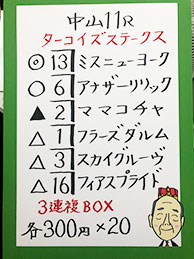 中山11R
ターコイズステークス
◎ 13 ミスニューヨーク
○ 6 アナザーリリック
▲ 2 ママコチャ
△ 1 フラーズダルム
△ 3 スカイグルーヴ
△ 16 フィアスプライド
3連複BOX
各300円×20